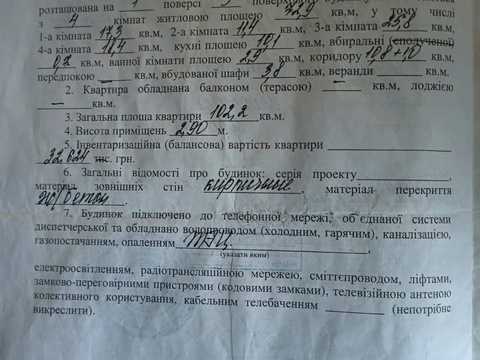 розташована на 1 поверсі
з 4 кімнат житловою площею 72,9 кв.м, у тому числі
1-а кімната 17,3 кв.м, 2-а кімната кв.м, 3-а кімната 25,8
4-а кімната 18,4 кв.м, кухні площею 10,1 кв.м, вбиральні (сполученої)
0,2 кв.м, ванної кімнати площею кв.м, коридору 10,8+10
передпокою — кв.м, вбудованої шафи 3,8 кв.м, веранди — кв.м.
2. Квартира обладнана балконом (терасою) — кв.м, лоджією
— кв.м.
3. Загальна площа квартири 102,2 кв.м.
4. Висота приміщень 2,90 м.
5. Інвентаризаційна (балансова) вартість квартири
32,624 тис. грн.
6. Загальні відомості про будинок: серія проекту
матеріал зовнішніх стін кирпичные, матеріал перекриття
ж/бетон.
7. Будинок підключено до телефонної мережі, об'єднаної системи
диспетчерської та обладнано водопроводом (холодним, гарячим), каналізацією,
газопостачанням, опаленням ТЭЦ,
(указати яким)
електроосвітленням, радіотрансляційною мережею, сміттєпроводом, ліфтами,
замково-переговірними пристроями (кодовими замками), телевізійною антеною
колективного користування, кабельним телебаченням (непотрібне
викреслити).